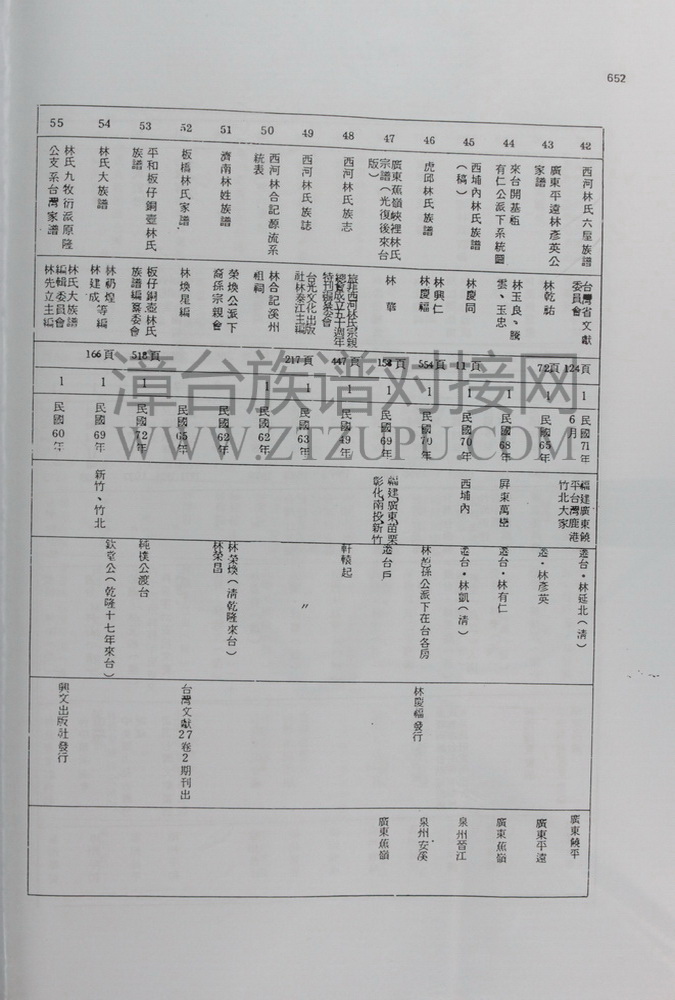 652
42
西河林氏六屋族譜
台灣省文獻
委員會
124頁
1
民國71年
6月
福建廣東饒
平台灣鹿港
竹北大家
遷台·林延北(清)
廣東饒平
43
廣東平遠林彥英公
家譜
林乾祐
72頁
1
民國65年
遷·林彥英
廣東平遠
44
來台開基祖
有仁公派下系統圖
林玉良、騰
雲、玉忠
1
民國68年
屏東萬巒
遷台·林有仁
廣東蕉嶺
45
西埔內林氏族譜
(稿)
林慶同
11頁
1
民國70年
西埔內
遷台·林凱(清)
泉州晉江
46
虎邱林氏族譜
林興仁
林慶福
554頁
1
民國70年
孫公派下在台各房
林慶福發行
泉州安溪
47
廣東蕉嶺峽裡林氏
宗譜(光復後來台
版)
林
158頁
1
民國69年
福建廣東苗栗
彰化南投新竹
遷台戶
廣東蕉嶺
48
西河林氏族志
旅菲西河林氏宗親
總會成立五十週年
特刊編纂委會
447頁
1
民國49年
軒轅起
49
西河林氏族誌
台光文化出版
社林泰江主編
217頁
1
民國63年
〃
50
西河林合記源流系
統表
林合記溪州
祖祠
1
民國62年
51
濟南林姓族譜
榮煥公派下
裔孫宗親會
1
民國62年
林榮煥(清乾隆來台)
林榮昌
52
板橋林氏家譜
林煥星編
1
民國65年
台灣文獻27卷2期刊出
53
平和板仔銅壺林氏
族譜
板仔銅壺林氏
族譜編纂委會
518頁
1
民國72年
純樸公渡台
54
林氏大族譜
林礽煌等編
林建成
166頁
1
民國69年
新竹、竹北
欽堂公(乾隆十七年來台)
55
林氏九牧衍派原隆
公支系台灣家譜
林氏大族譜
編輯委員會
林先立主編
1
民國60年
興文出版社發行
漳台族谱对接网
WWW.ZTZUPU.COM